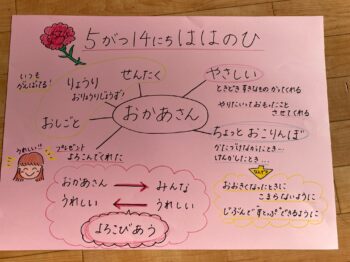 5がつ14にち ははのひ
いつも
がんばってる!
りょうり
おりょうりじょうず
せんたく
やさしい
ときどき すきなもの かってくれる
やりたいっておもったこと
させてくれる
おしごと
おかあさん
ちょっと おこりんぼ
かたづけなかったとき…
けんかしたとき…
うれしい!!
プレゼント
よろこんでくれた
なんで?
おおきくなったときに
こまらないように
じぶんで すとっぷできるように
おかあさん
うれしい
みんな
うれしい
よろこびあう